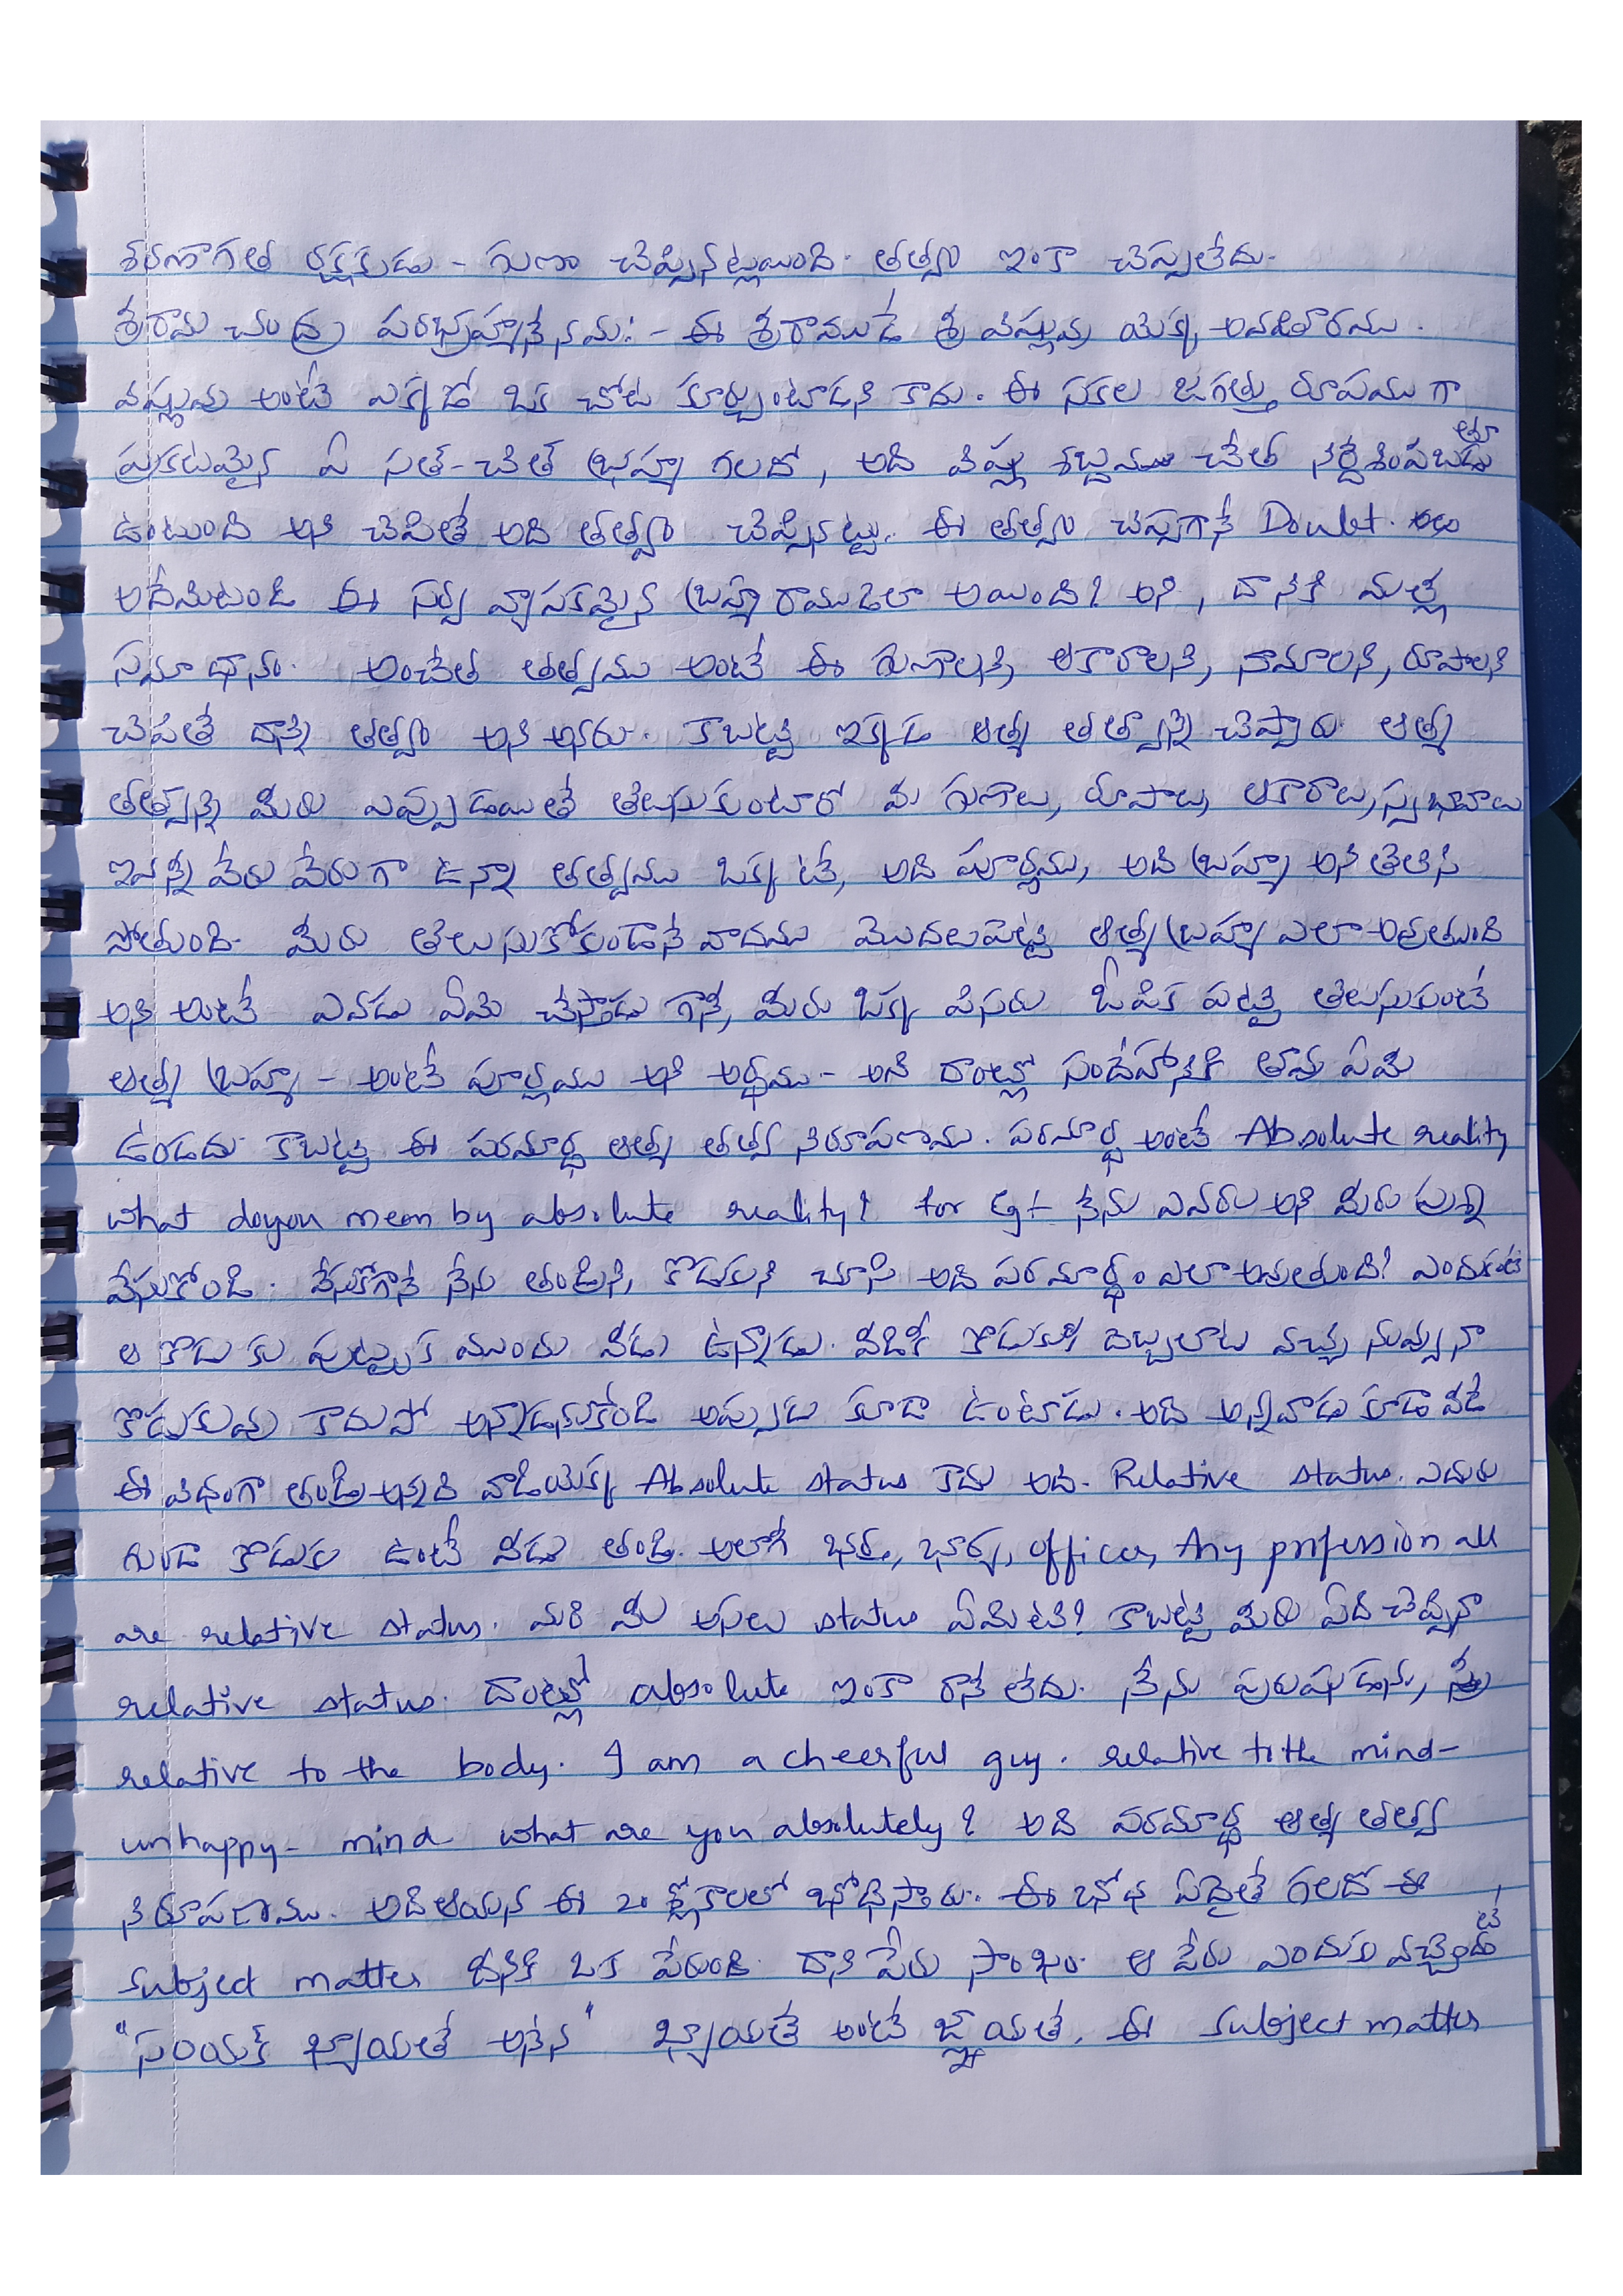 శరణాగత రక్షకుడు - గుణం చెప్పినట్లయింది. తత్త్వం ఇంకా చెప్పలేదు.
శ్రీరామ చంద్ర పరబ్రహ్మణేనమః - ఈ శ్రీరాముడే శ్రీ విష్ణువు యొక్క అవతారము.
విష్ణువు అంటే ఎక్కడో ఒక చోట కూర్చుంటాడని కాదు. ఈ సకల జగత్తు రూపము గా
ప్రకటమైన ఏ సత్-చిత్ బ్రహ్మ గలదో, అది విష్ణు శబ్దము చేత నిర్దేశింపబడుతూ
ఉంటుంది అని చెపితే అది తత్త్వం చెప్పినట్టు. ఈ తత్త్వం చెప్పగానే Doubt.
అదేమిటండి ఈ సర్వ వ్యాపకమైన బ్రహ్మ రాముడెలా అయింది? అని, దానికి మళ్ళీ
సమాధానం. అంచేత తత్త్వము అంటే ఈ గుణాలని, ఆకారాలని, నామాలని, రూపాలని
చెపితే దాన్ని తత్త్వం అని అనరు. కాబట్టి ఇక్కడ ఆత్మ తత్త్వాన్ని చెప్తారు ఆత్మ
తత్త్వాన్ని మీరు ఎప్పుడయితే తెలుసుకుంటారో మీ గుణాలు, రూపాలు, ఆకారాలు, స్వభావాలు
ఇవన్నీ వేరు వేరుగా ఉన్నా తత్త్వము ఒక్కటే, అది పూర్ణము, అది బ్రహ్మ అని తెలిసి
పోతుంది. మీరు తెలుసుకోకుండానే వాదము మొదలుపెట్టి ఆత్మ బ్రహ్మ ఎలా అవుతుంది
అని అంటే ఎవడు ఏమి చేస్తాడు గానీ, మీరు ఒక్క పిసరు ఓపిక పట్టి తెలుసుకుంటే
ఆత్మ బ్రహ్మ - అంటే పూర్ణము అని అర్థము - అని దాంట్లో సందేహానికి తావు ఏమి
ఉండదు. కాబట్టి ఈ పరమార్థ ఆత్మ తత్త్వ నిరూపణము. పరమార్థ అంటే Absolute reality
what do you mean by absolute reality? for Eg:- నేను ఎవరు అని మీరు ప్రశ్న
వేసుకోండి. వేసుకోగానే నేను తండ్రిని, కొడుకుని చూసి అది పరమార్థం ఎలా అవుతుంది? ఎందుకంటే
ఆ కొడుకు పుట్టక ముందు వీడు ఉన్నాడు. వీడికీ కొడుకుకీ దెబ్బలాట వచ్చి నువ్వు నా
కొడుకువు కాదుపో అన్నాడనుకోండి అప్పుడు కూడా ఉంటాడు. అది అన్నవాడు కూడా వీడే
ఈ విధంగా తండ్రి అన్నది వాడియొక్క Absolute status కాదు అది. Relative status. ఎదురు
గుండా కొడుకు ఉంటే వీడు తండ్రి. అలాగే భర్త, భార్య, officer, Any profession all
are relative status. మరి మీ అసలు status ఏమిటి? కాబట్టి మీరు ఏది చెప్పినా
relative status. దాంట్లో absolute ఇంకా రానే లేదు. నేను పురుషుడను,
relative to the body. I am a cheerful guy. relative to the mind-
unhappy- mind what are you absolutely? అది పరమార్థ ఆత్మ తత్త్వ
నిరూపణము. అది ఆయన ఈ 20 శ్లోకాలలో బోధిస్తారు. ఈ బోధ ఏదైతే గలదో ఈ
subject matter దీనికి ఒక పేరుంది. దాని పేరు సాంఖ్యం. ఆ పేరు ఎందుకు వచ్చిందంటే
"సంయక్ ఖ్యాయతే అనేన" ఖ్యాయతే అంటే జ్ఞాయతే. ఈ subject matter